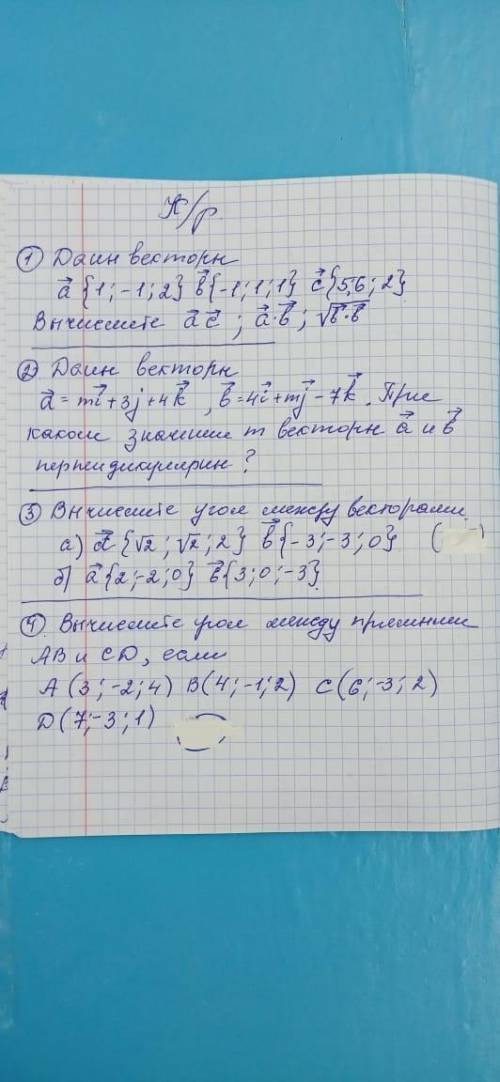 К/р.
① Даны векторы
a⃗ {1; -1; 2} b⃗ {-1; 1; 1} c⃗ {5,6; 2}
Вычислите a⃗ c⃗ ; a⃗·b⃗ ; √b⃗·b⃗
② Даны векторы
a⃗ = mi⃗ + 3j⃗ + 4k⃗, b⃗ = 4i⃗ + mj⃗ - 7k⃗. При
каком значении m векторы a⃗ и b⃗
перпендикулярны?
③ Вычислите угол между векторами
а) a⃗ {√2; √2; 2} b⃗ {-3; -3; 0} (
б) a⃗ {2; -2; 0} b⃗ {3; 0; -3}
④ Вычислите угол между прямыми
AB и CD, если
A (3; -2; 4) B (4; -1; 2) C (6; -3; 2)
D (7; -3; 1)